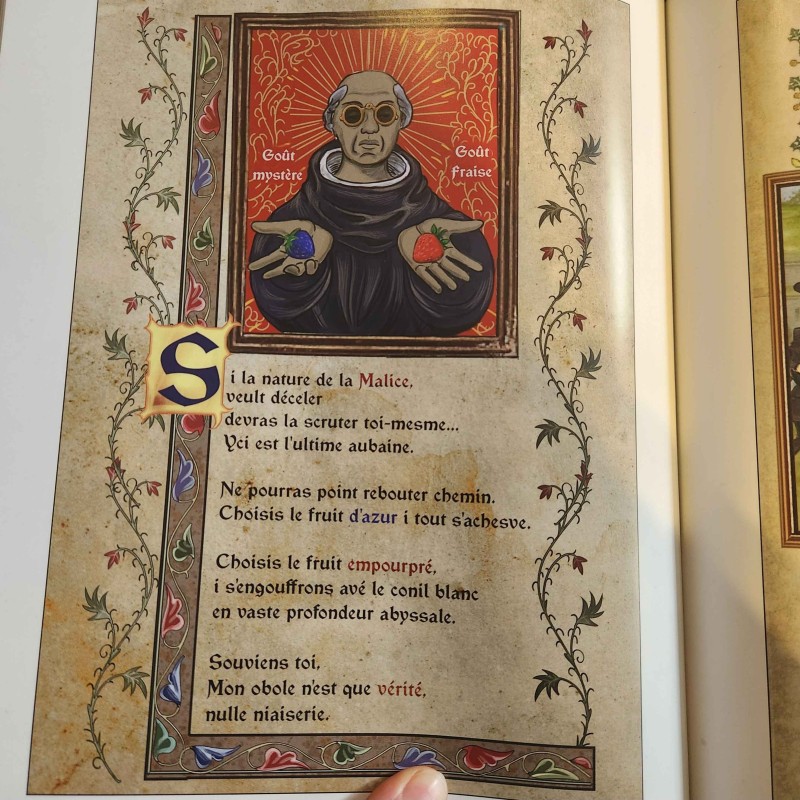 Goût
mystère
Goût
fraise
Si la nature de la Malice,
veult déceler
devras la scruter toi-mesme...
Yci est l'ultime aubaine.
Ne pourras point rebouter chemin.
Choisis le fruit d'azur i tout s'achesve.
Choisis le fruit empourpré,
i s'engouffrons avé le conil blanc
en vaste profondeur abyssale.
Souviens toi,
Mon obole n'est que vérité,
nulle niaiserie.